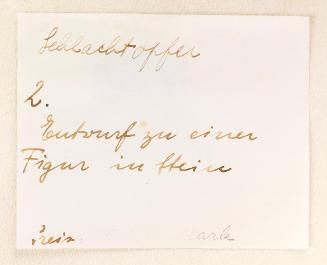 Schlachtopfer
2.
Entwurf zu einer
Figur in Stein
Preis Mark